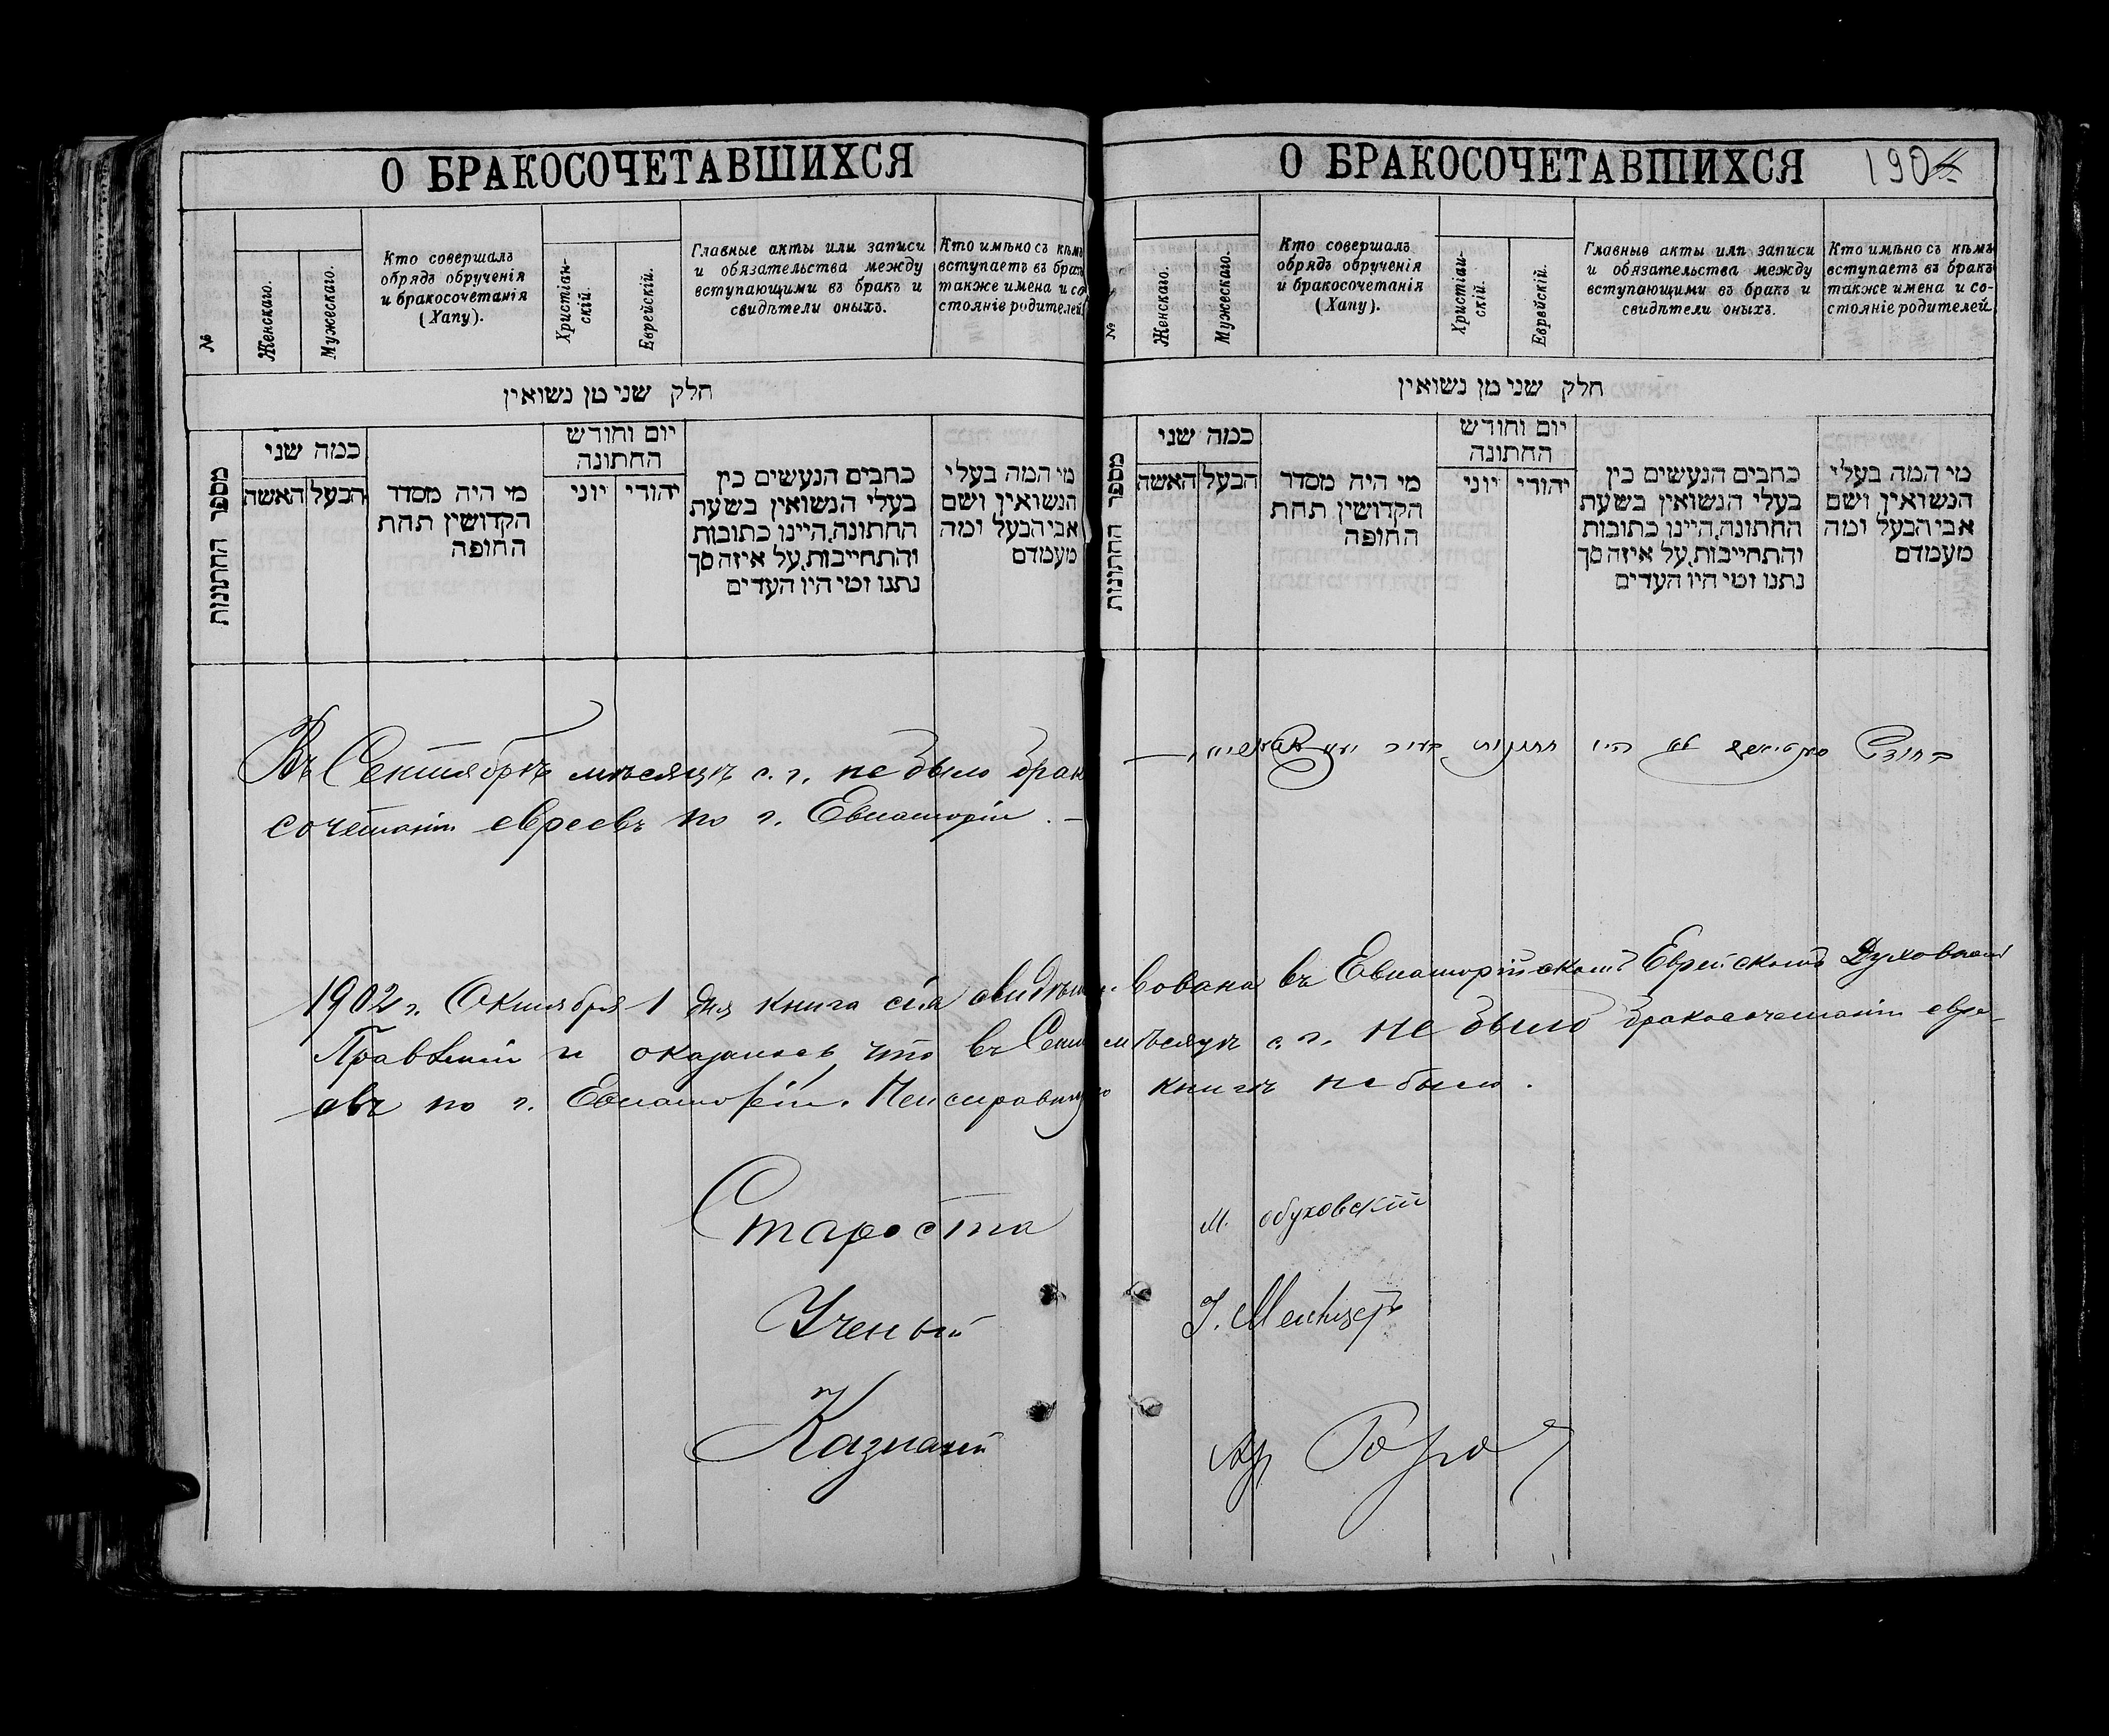 О БРАКОСОЧЕТАВШИХСЯ
№
Женскаго.
Мужескаго.
Кто совершалъ
обрядъ обрученія
и бракосочетанія
(Хапу).
Христіан-
скій.
Еврейскій.
Главные акты или записи
и обязательства между
вступающими въ бракъ и
свидѣтели оныхъ.
Кто имѣно съ кѣмъ
вступаетъ въ бракъ
также имена и со-
стояніе родителей.
חלק שני מן נשואין
מספר החתונות
כמה שני
האשה
הבעל
מי היה מסדר
הקדושין תחת
החופה
יום וחודש
החתונה
יוני
יהודי
כתבים הנעשים בין
בעלי הנשואין בשעת
החתונה, היינו כתובות
והתחייבות, על איזה סך
נתנו ומי היו העדים
מי המה בעלי
הנשואין ושם
אבי הבעל ומה
מעמדם
Въ Сентябрѣ мѣсяцѣ с. г. не было брако
сочетанія евреевъ по г. Евпаторіи. —
О БРАКОСОЧЕТАВШИХСЯ 190
№
Женскаго.
Мужескаго.
Кто совершалъ
обрядъ обрученія
и бракосочетанія
(Хапу).
Христіан-
скій.
Еврейскій.
Главные акты или записи
и обязательства между
вступающими въ бракъ и
свидѣтели оныхъ.
Кто имѣно съ кѣмъ
вступаетъ въ бракъ
также имена и со-
стояніе родителей.
חלק שני מן נשואין
מספר החתונות
כמה שני
האשה
הבעל
מי היה מסדר
הקדושין תחת
החופה
יום וחודש
החתונה
יוני
יהודי
כתבים הנעשים בין
בעלי הנשואין בשעת
החתונה, היינו כתובות
והתחייבות, על איזה סך
נתנו ומי היו העדים
מי המה בעלי
הנשואין ושם
אבי הבעל ומה
מעמדם
בחודש סעפטיאבר לא היו חתונות בעיר
1902 г. Октября 1 дня книга сія свидѣтельствована въ Евпаторійскомъ Еврейскомъ Духовномъ
Правленіи и оказалось, что въ Сент мѣсяцѣ с. г. не было бракосочетанія евре-
евъ по г. Евпаторіи. Неисправную книгѣ не было.
Староста М. Обуховскій
Ученый
Казначей